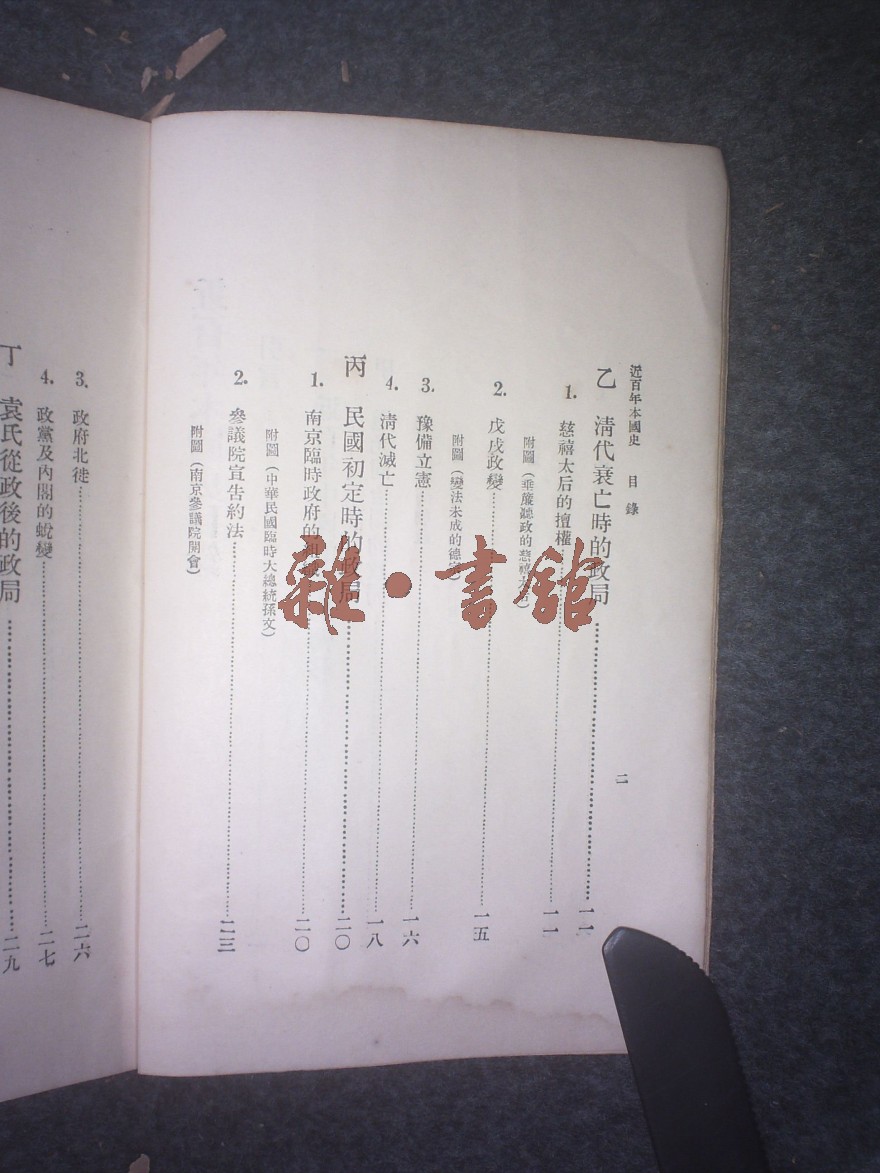 近百年本國史 目錄 二
乙 清代衰亡時的政局 一一
1. 慈禧太后的擅權 一一
附圖（垂簾聽政的慈禧
2. 戊戌政變 一五
附圖（變法未成的德宗）
3. 豫備立憲 一六
4. 清代滅亡 一八
丙 民國初定時的政局 二〇
1. 南京臨時政府的 二〇
附圖（中華民國臨時大總統孫文）
2. 參議院宣告約法 二三
附圖（南京參議院開會）
3. 政府北徙 二六
4. 政黨及內閣的蛻變 二七
丁 袁氏從政後的政局 二九
雜·書館